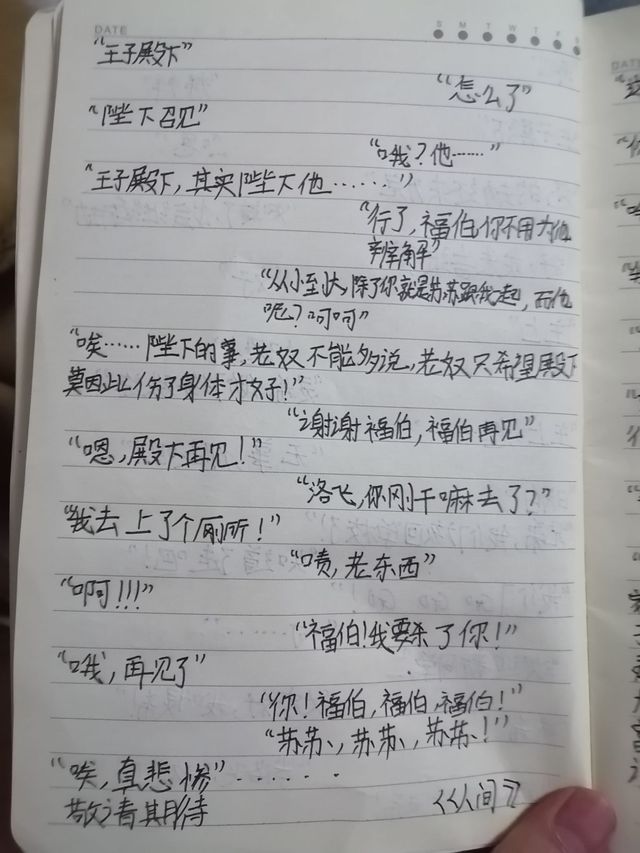 DATE
S M T W T F S
“王子殿下”
“怎么了”
“陛下召见”
“哦？他……”
“王子殿下，其实陛下他……”
“行了，福伯，你不用为他
辩解”
“从小至大，除了你就是苏苏跟我一起，而他
呢？呵呵”
“唉……陛下的事，老奴不能多说，老奴只希望殿下
莫因此伤了身体才好！”
“谢谢福伯，福伯再见”
“嗯，殿下再见！”
“洛飞，你刚干嘛去了？”
“我去上了个厕所！”
“啧，老东西”
“啊！！！”
“福伯！我要杀了你！”
“哦，再见了”
“你！福伯，福伯，福伯！”
“苏苏、苏苏、苏苏！”
“唉，真悲惨”……
敬请期待
《人间》
DATE